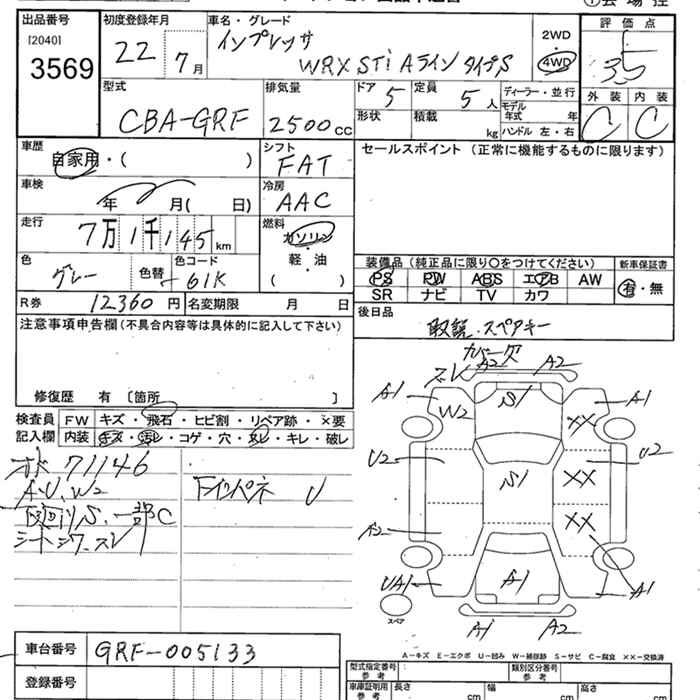 出品番号
[2040]
3569
初度登録年月
22 7月
車名・グレード
インプレッサ
WRX STi Aライン タイプS
2WD
4WD
評価点
3.5
外装 内装
C C
型式
CBA-GRF
排気量
2500cc
ドア 5
定員 5人
形状
積載 kg
ディーラー・並行
モデル年式 年
ハンドル 左・右
車歴
自家用・( )
シフト
FAT
セールスポイント (正常に機能するものに限ります)
車検
年 月( 日)
冷房
AAC
走行
7万1千145km
燃料
ガソリン
・
軽・油
( )
色
グレー
色替
色コード
61K
装備品 (純正品に限り○をつけてください)
新車保証書
PS PW ABS エアB AW
SR ナビ TV カワ
有・無
R券 12360円
名変期限 月 日
後日品
取説・スペアキー
注意事項申告欄(不具合内容等は具体的に記入して下さい)
修復歴 有 [箇所 ]
検査員記入欄
FW キズ・飛石・ヒビ割・リペア跡・×要
内装 キズ・汚レ・コゲ・穴・スレ・キレ・破レ
71146
A、U、W2
下廻りS、一部C
シートシワ、スレ
U
カバー欠
ズレ A2 A2
A1 A1
W2 S1 XX
U2 U2
S1 XX
XX
A2
UA1 A1 A1
スペア
A1 A2
A-キズ E-エクボ U-凹み W-補修跡 S-サビ C-腐食 XX-交換済
車台番号
GRF-005133
登録番号
型式指定番号 参考
類別区分番号 参考
車庫証明用 参考
長さ cm
幅 cm
高さ cm